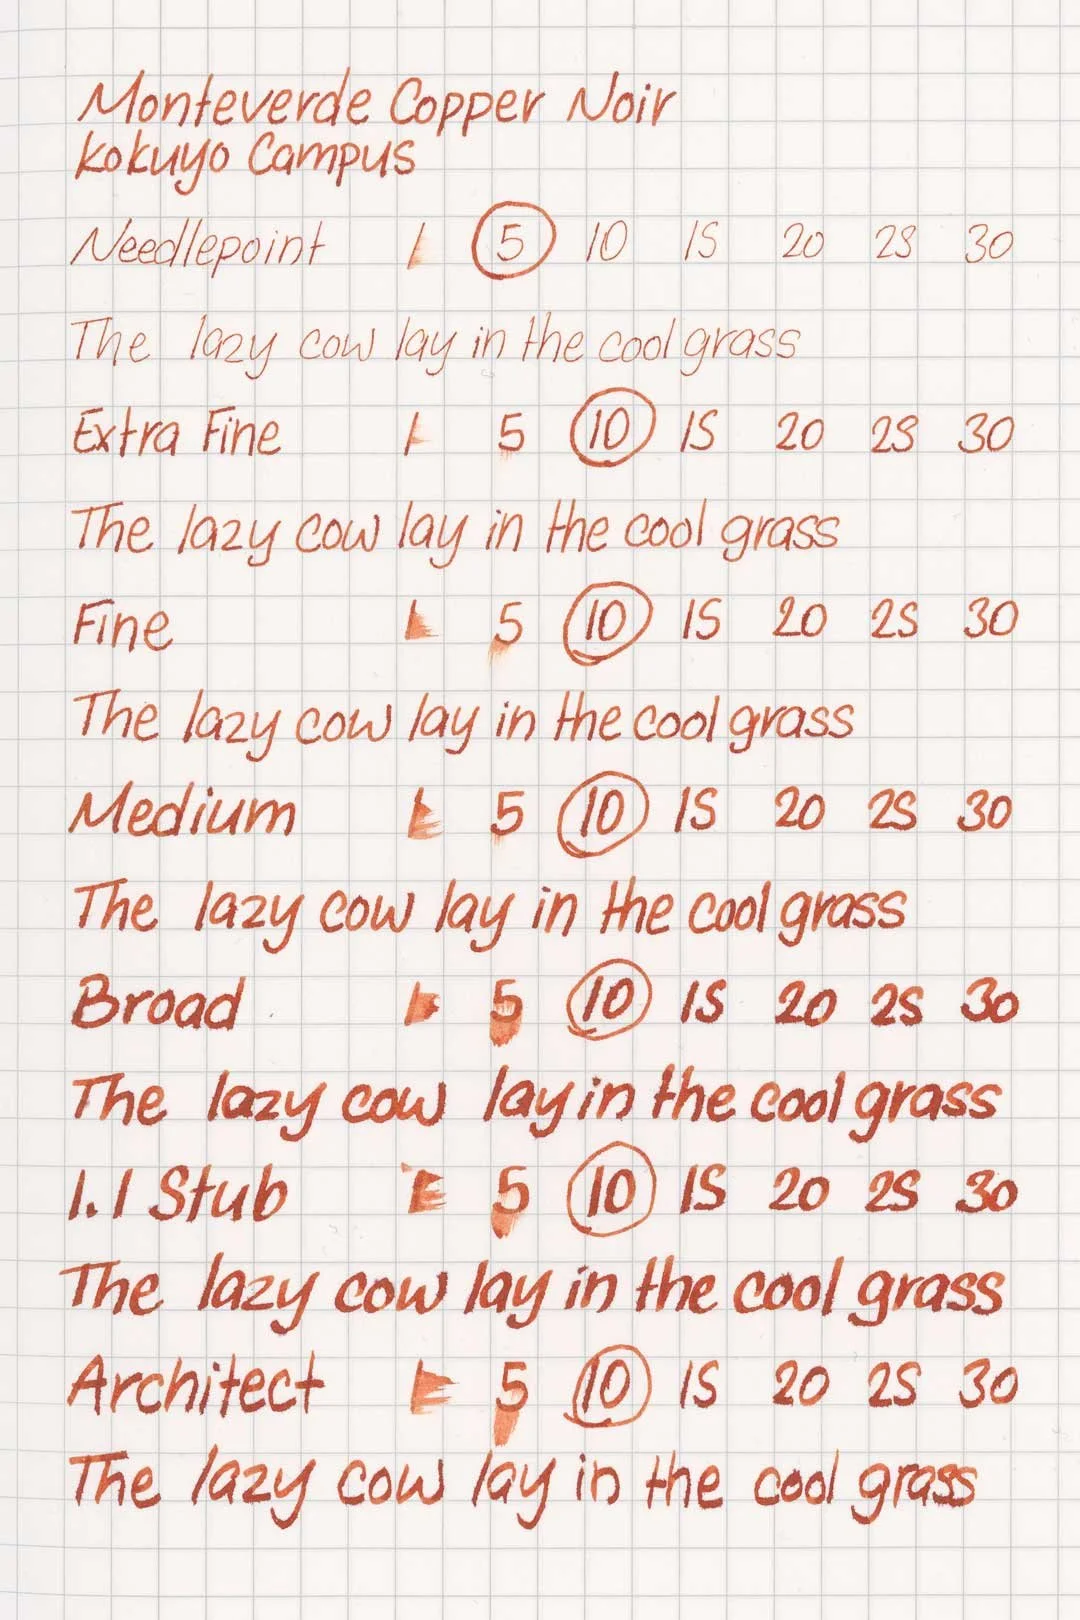 Monteverde Copper Noir
Kokuyo Campus
Needlepoint 1 5 10 15 20 25 30
The lazy cow lay in the cool grass
Extra Fine 1 5 10 15 20 25 30
The lazy cow lay in the cool grass
Fine 1 5 10 15 20 25 30
The lazy cow lay in the cool grass
Medium 1 5 10 15 20 25 30
The lazy cow lay in the cool grass
Broad 1 5 10 15 20 25 30
The lazy cow lay in the cool grass
1.1 Stub 1 5 10 15 20 25 30
The lazy cow lay in the cool grass
Architect 1 5 10 15 20 25 30
The lazy cow lay in the cool grass